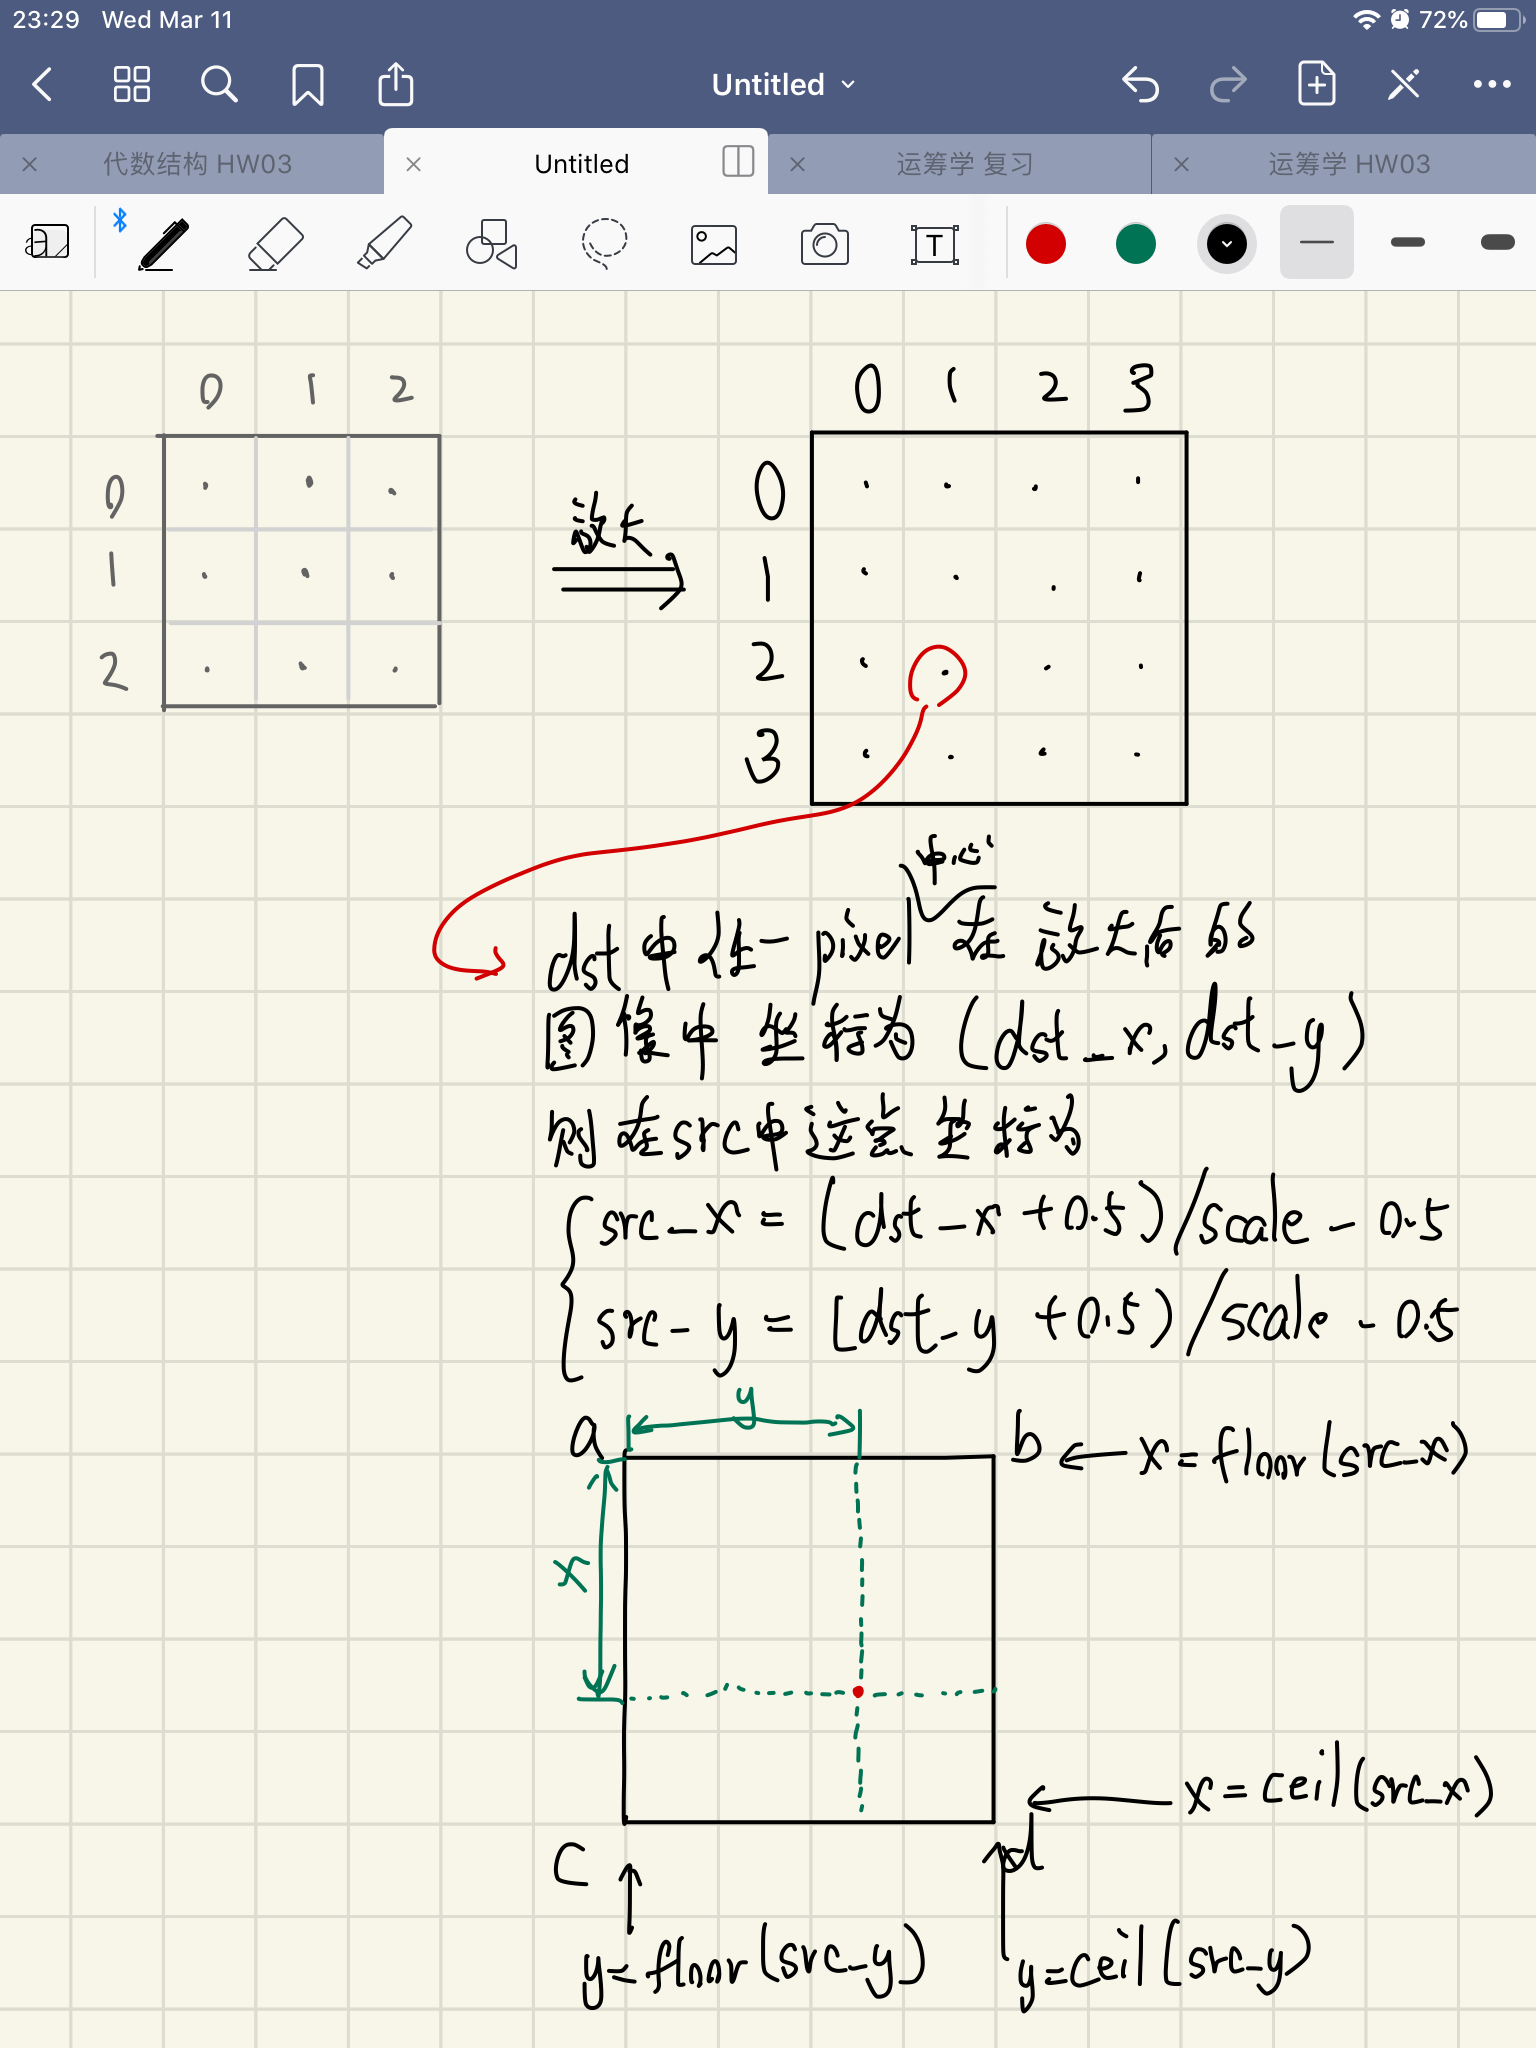 23:29 Wed Mar 11 72%
Untitled
代数结构 HW03 Untitled 运筹学 复习 运筹学 HW03
T
0 1 2
0
1
2
放大
0 1 2 3
0
1
2
3
中心
dst中任一pixel在放大后的
图像中坐标为 (dst_x, dst_y)
则在src中这点坐标为
src_x = (dst_x +0.5)/scale - 0.5
src_y = (dst_y +0.5)/scale - 0.5
y
a b ← x = floor(src_x)
x
← x = ceil(src_x)
c d
y=floor(src_y) y=ceil(src_y)